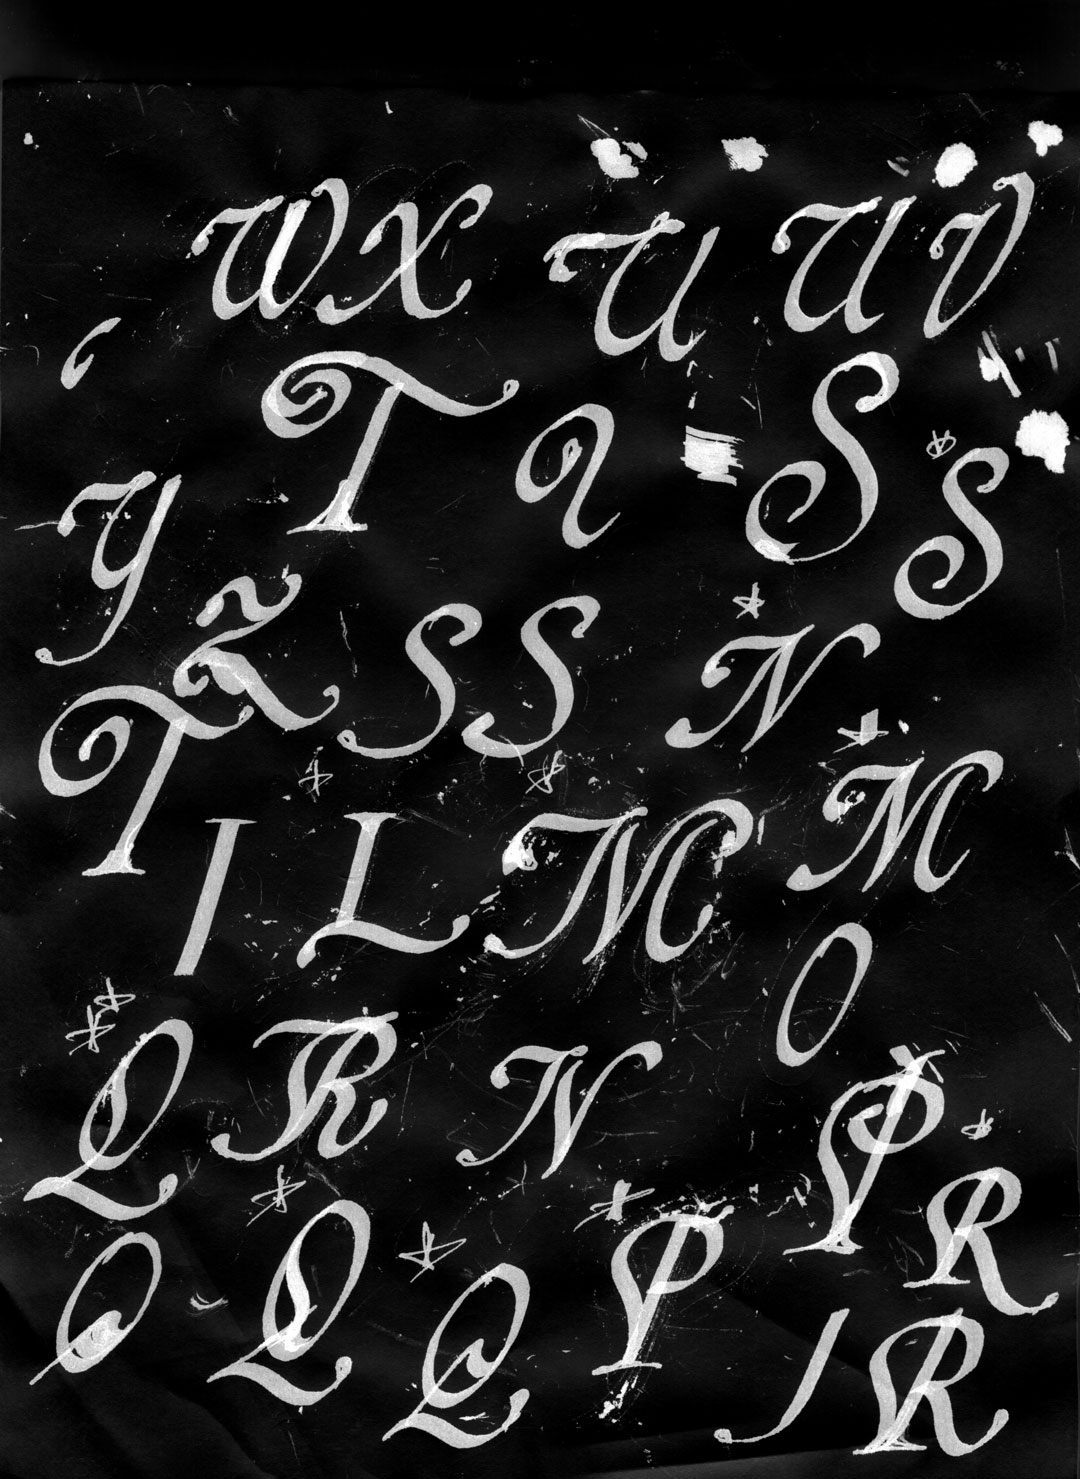 W X U U V
T S S
Y Z S S N
T I L M M
O
Q R N P R
O Q Q P J R